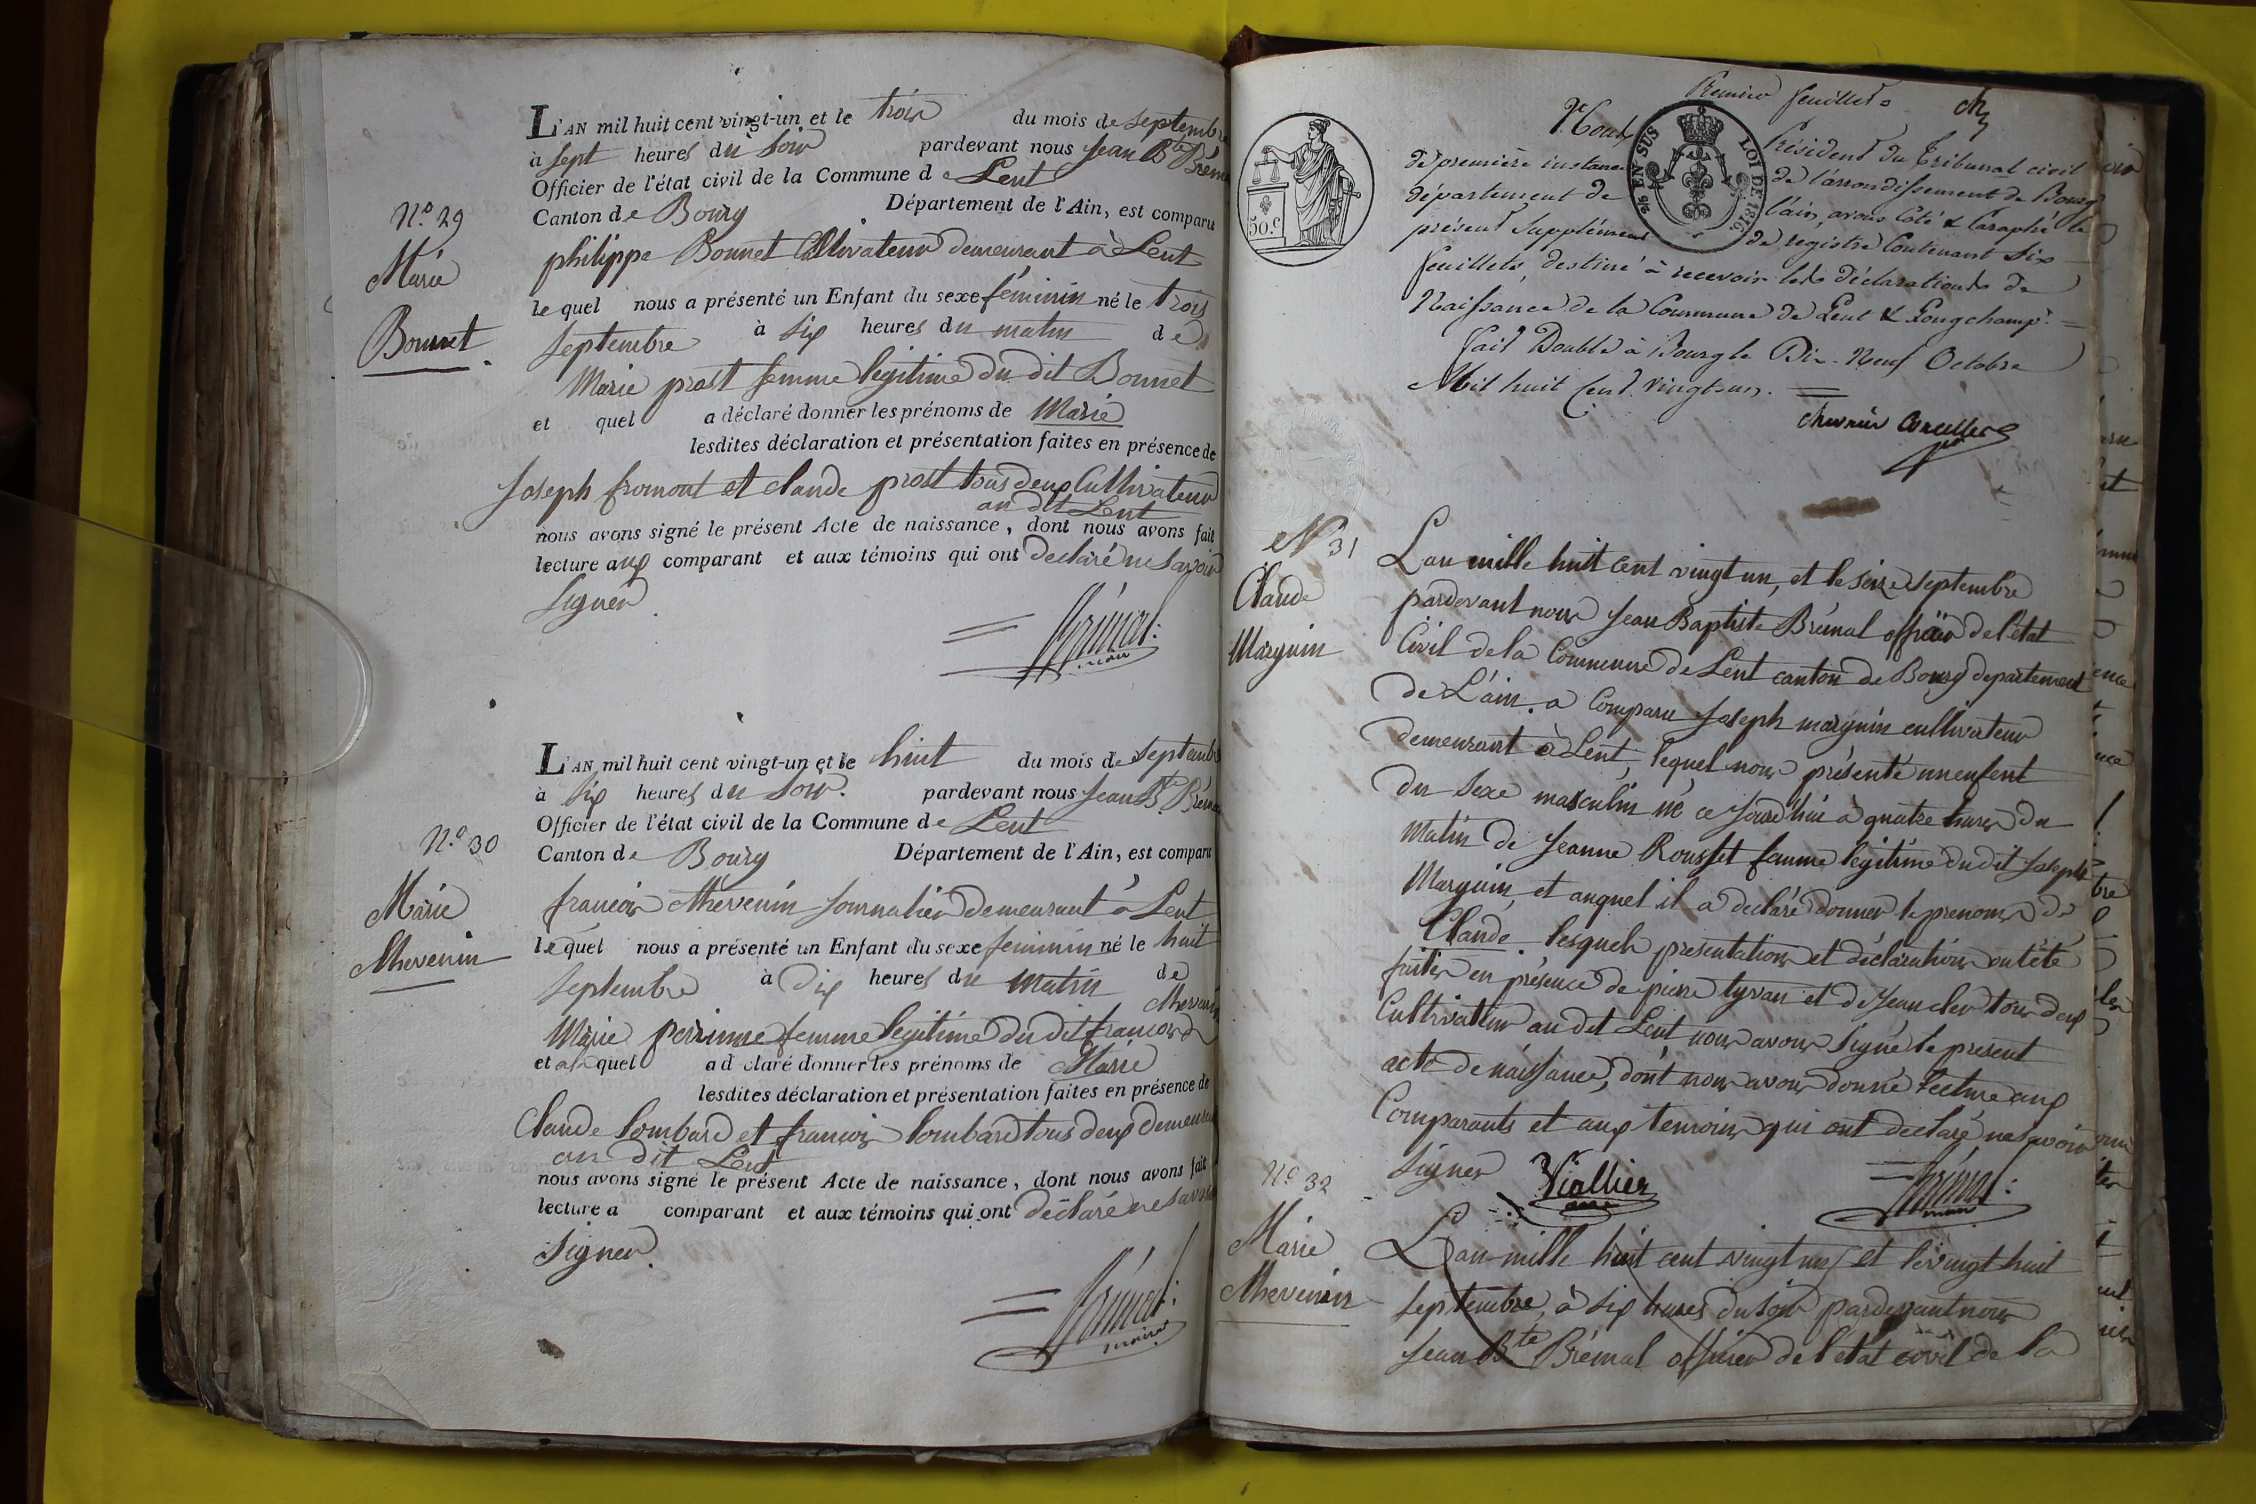 L'AN mil huit cent vingt-un et le trois du mois de septembre
à sept heures du soir pardevant nous Jean Bte Brémal
Officier de l'état civil de la Commune de Lent
Canton de Bourg Département de l'Ain, est comparu
N.o 29
Marie
Bonnet
philippe Bonnet Cultivateur demeurant à Lent
le quel nous a présenté un Enfant du sexe féminin né le trois
septembre à six heures du matin de
Marie prost femme legitime du dit Bonnet
et quel a déclaré donner les prénoms de Marie
lesdites déclaration et présentation faites en présence de
Joseph fromont et claude prost tous deux Cultivateur
au dit Lent
nous avons signé le présent Acte de naissance, dont nous avons fait
lecture aux comparant et aux témoins qui ont declaré ne savoir
signer
Brémal
maire
L'AN mil huit cent vingt-un et le huit du mois de septembre
à six heures du soir. pardevant nous Jean Bte Brémal
Officier de l'état civil de la Commune de Lent
Canton de Bourg Département de l'Ain, est comparu
N.o 30
Marie
thevenin
françois thevenin journalier demeurant à Lent
le quel nous a présenté un Enfant du sexe feminin né le huit
septembre à dix heures du matin de
Marie perrinne femme legitime du dit françois thevenin
et au quel a d claré donner les prénoms de Marie
lesdites déclaration et présentation faites en présence de
Claude Lombard et françois Lombard tous deux demeurant
au dit Lent
nous avons signé le présent Acte de naissance, dont nous avons fait
lecture a comparant et aux témoins qui ont déclaré ne savoir
signer
Brémal
maire
Premier feuillet
50.c
2/5 EN SUS LOI DE 1816
Nous Président du Tribunal civil
de première instance de l'arrondissement de Bourg
département de l'ain, avons Côté & Paraphé le
présent Supplément de registre Contenant Six
feuillets, destiné à recevoir les déclarations de
Naissance de la Commune de Lent & Longchamp.
fait Double à Bourg le Dix-Neuf Octobre
Mil huit Cent vingt-un.
chevrier corcelles
N 31
Claude
Marguin
L'an mille huit cent vingt un, et le seize septembre
pardevant nous Jean Baptiste Brémal officier de l'état
Civil de la Commune de Lent canton de Bourg departement
de L'ain. a Comparu Joseph marguin cultivateur
demeurant à Lent, lequel nous présenté un enfent
du sexe masculin né ce jourd'hui à quatre heures du
matin de Jeanne Rousset femme legitime du dit Joseph
Marguin, et auquel il a declaré donner le prenoms de
Claude. lesquels presentation et déclaration ont été
faites en présence de pierre tyvan et de Jean cler tous deux
Cultivateur au dit Lent nous avons signé le present
acte de naissance, dont nous avons donné lecture aux
Comparants et aux temoins qui ont declaré ne savoir
signer
Viallier
Brémal
maire
N.o 32
Marie
thevenin
L'an mille huit cent vingt un et le vingt huit
septembre, à six heures du soir pardevant nous
Jean Bte Brémal officier de l'état civil de la